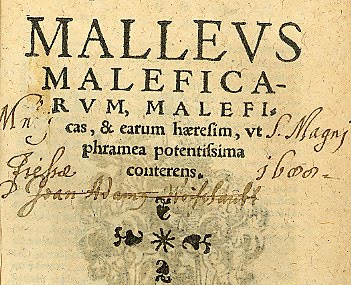 MALLEVS
MALEFICA-
RVM, MALEFI-
cas, & earum hæresim, vt
phramea potentissima
conterens.
S. Magni
Fiessæ
1600-
Joan Adamg